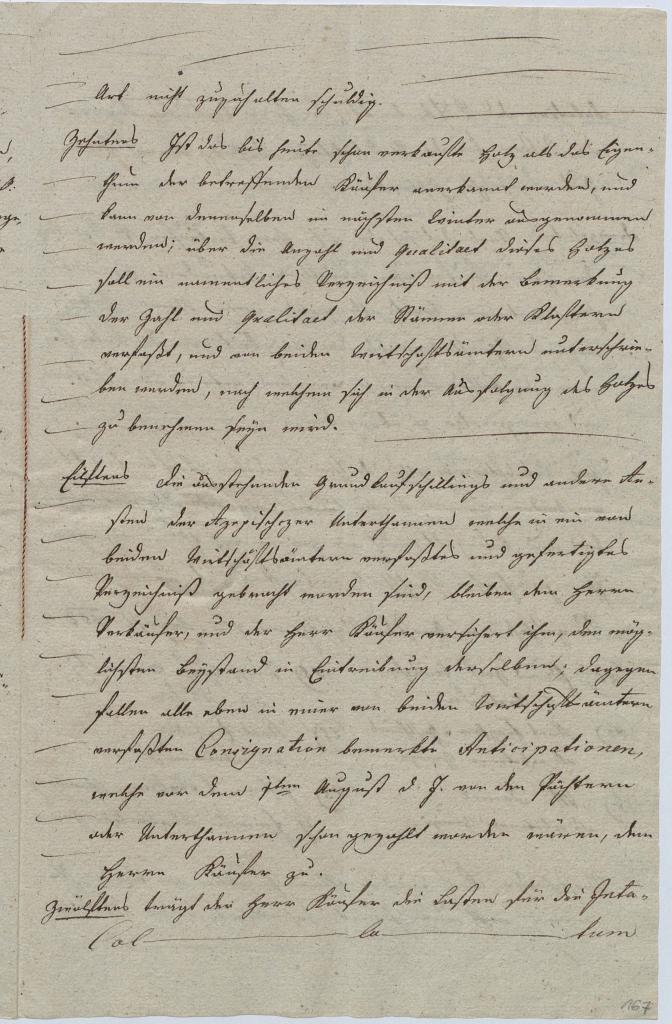 Art nicht zuzuhalten schuldig.
Zehntens Ist das bis heute schon verkaufte Holz als das Eigen-
thum der betreffenden Käufer anerkannt worden, und
kann von denenselben im nächsten Winter ausgenommen
werden; über die Anzahl und Qualitaet dieses Holzes
soll ein namentliches Verzeichniß mit der Bemerkung
der Zahl und Qualitaet der Stämme oder Klaftern
verfaßt, und von beiden Wirtschaftsämtern unterschrie-
ben werden, nach welchem sich in der Ausfolgung des Holzes
zu benehmen seyn wird.
Eilftens Die ausstehenden Grundkaufschillings und andere Re-
sten der Unterthannen welche in ein von
beiden Wirtschaftsämtern verfaßtes und gefertigtes
Verzeichniß gebracht worden sind, bleiben dem Herrn
Verkäufer, und der Herr Käufer versichert ihm, den mög-
lichsten Beystand in Eintreibung derselben; dagegen
fallen alle eben in einer von beiden Wirtschaftsämtern
verfaßten Consignation bemerkte Anticipationen,
welche vor dem 1ten August d. J. von den Pächtern
oder Unterthannen schon gezahlt worden wären, dem
Herrn Käufer zu.
Zwölftens trägt der Herr Käufer die Lasten für die Inta-
Col la tum
167